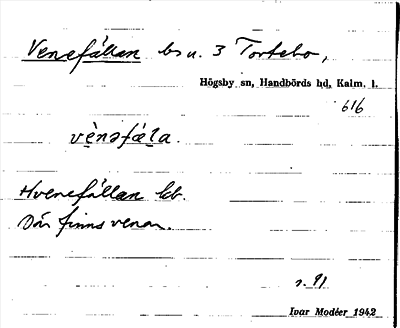 Venefållan bs u. 3 Tortebo,
Högsby sn, Handbörds hd, Kalm. l.
616
vènəfála.
Hvenefållan kb.
Där finns venar.
s. 91
Ivar Modéer 1942